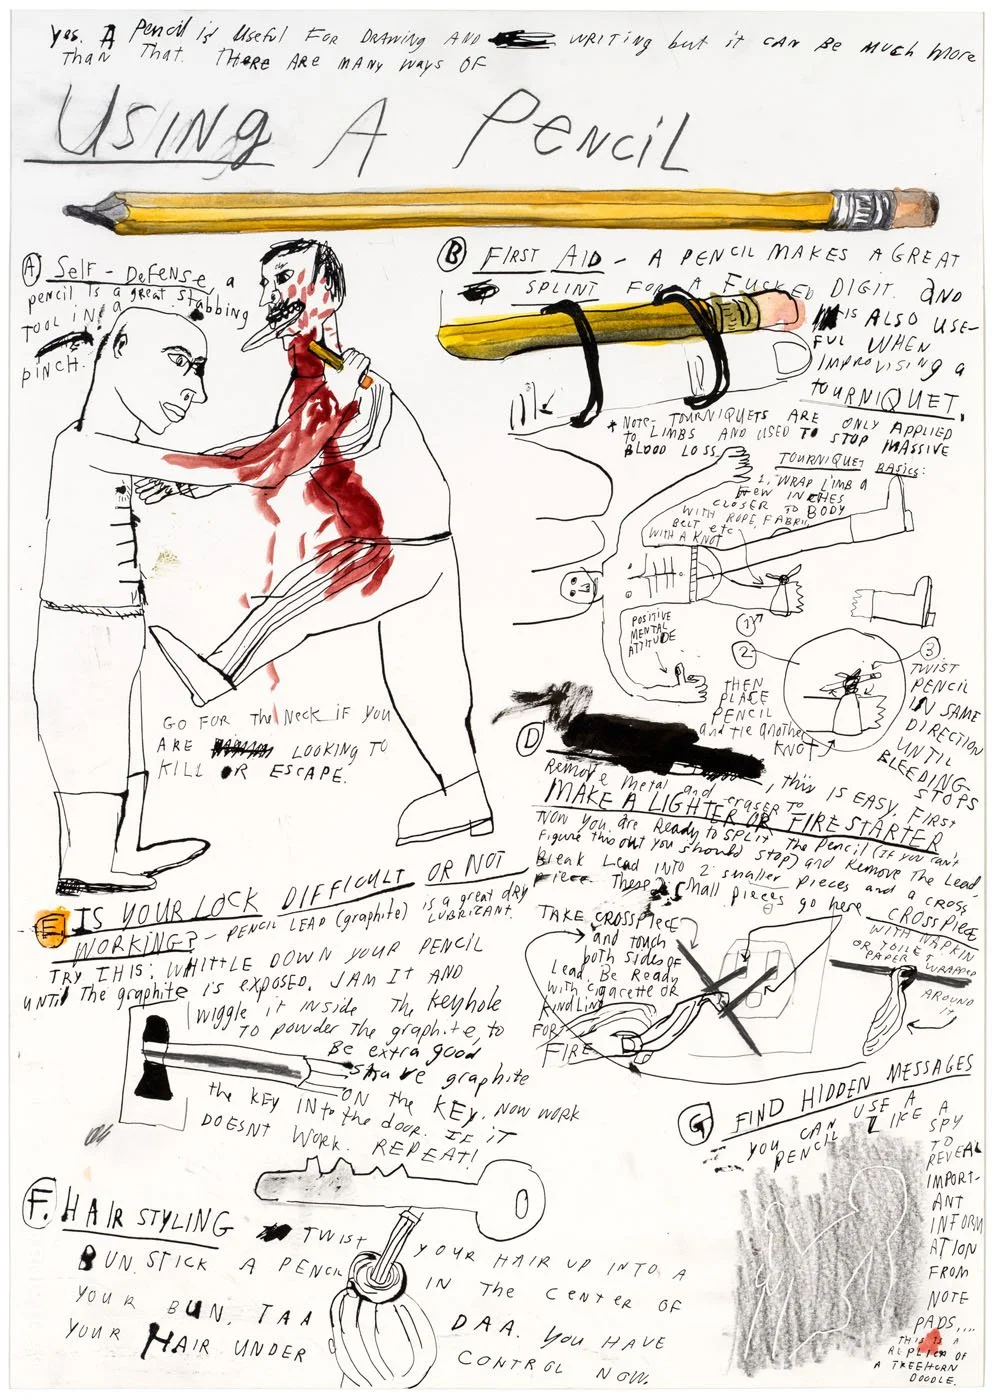 yes. A Pencil is Useful FOR DRAWING AND WRITING but it CAN BE MUCH more
Than That. THERE ARE MANY ways OF
USING A PENCIL
A SELF-DEFENSE, a
pencil is a great stabbing
TOOL IN a
PINCH.
GO FOR The NECK if YOU
ARE LOOKING TO
KILL OR ESCAPE.
B FIRST AID - A PENCIL MAKES A GREAT
SPLINT FOR A FUCKED DIGIT. AND
IS ALSO USE-
FUL WHEN
IMPROVISING a
TOURNIQUET.
* NOTE- TOURNIQUETS ARE ONLY APPLIED
to LIMBS AND USED TO STOP MASSIVE
BLOOD LOSS
TOURNIQUET BASICS:
1. WRAP LIMB a
FEW INCHES
CLOSER TO BODY
WITH ROPE, FABRIC,
BELT etc
WITH A KNOT
POSITIVE
MENTAL
ATTITUDE
1
2
THEN
PLACE
PENCIL
and tie another
KNOT
3
TWIST
PENCIL
IN SAME
DIRECTION
UNTIL
BLEEDING
STOPS
D
, this IS EASY. FIRST
Remove metal and eraser TO
MAKE A LIGHTER OR FIRE STARTER
NOW you are Ready to SPLIT The Pencil (IF you can't
Figure this out you should stop) and Remove The Lead.
Break Lead INTO 2 smaller pieces and a CROSS
Piece. These small pieces go here
CROSSPIECE
WITH NAPKIN
OR TOILET
PAPER WRAPPED
AROUND
IT
TAKE CROSSPIECE
and touch
both sides of
Lead. Be Ready
with cigarette or
KINDLING
FOR
FIRE
E IS YOUR LOCK DIFFICULT OR NOT
WORKING? - PENCIL LEAD (graphite) is a great dry
LUBRICANT.
TRY THIS: WHITTLE DOWN YOUR PENCIL
UNTIL The graphite IS EXPOSED. JAM IT AND
wiggle it INSIDE The Keyhole
TO powder The graphite, to
Be extra good
shave graphite
ON the KEY. NOW WORK
the KEY INto the door. IF IT
DOESNT WORK. REPEAT!
F. HAIR STYLING
TWIST YOUR HAIR UP INTO A
BUN. STICK A PENCIL IN The CENTER OF
YOUR BUN, TAA DAA. YOU HAVE
YOUR HAIR UNDER CONTROL NOW.
G FIND HIDDEN MESSAGES
YOU CAN USE A
PENCIL LIKE A
SPY
TO
REVEAL
IMPORT-
ANT
INFORM
ATION
FROM
NOTE
PADS....
THIS IS A
REPLICA OF
A TREEHORN
DOODLE.